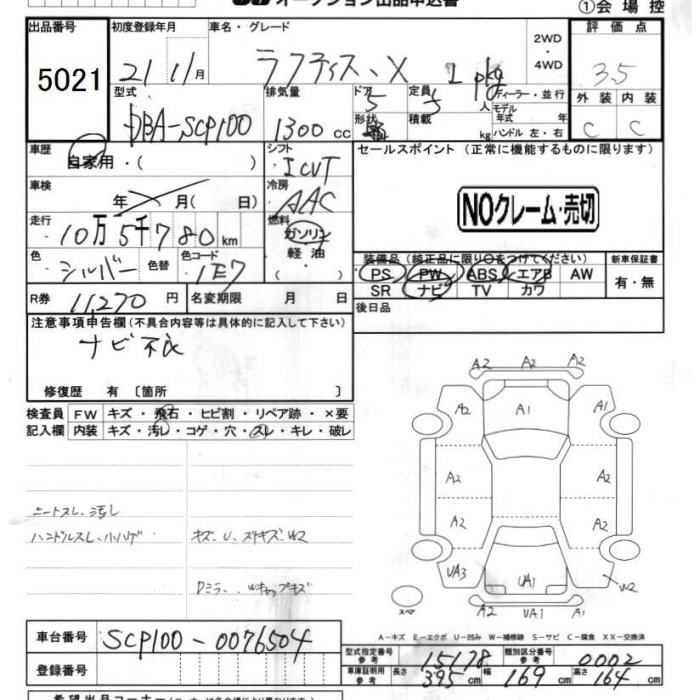 オークション出品申込書
①会場控
出品番号 5021
初度登録年月 21 11月
車名・グレード ラクティス、X 2WD・4WD
評価点 3.5
型式 DBA-SCP100
排気量 1300 cc
ドア 5
定員 5 人
形状
積載 kg
ディーラー・並行
モデル年式 年
ハンドル 左・右
外装 C
内装 C
車歴 自家用・( )
シフト ICVT
セールスポイント (正常に機能するものに限ります)
NOクレーム・売切
車検 年 月( 日)
冷房 AAC
走行 10万5千780km
燃料 ガソリン 軽油 ( )
色 シルバー 色替
色コード 1E7
装備品 (純正品に限り○をつけてください)
PS PW ABS エアB AW
SR ナビ TV カワ
新車保証書 有・無
R券 11,270 円
名変期限 月 日
後日品
注意事項申告欄 (不具合内容等は具体的に記入して下さい)
ナビ不良
修復歴 有 〔箇所 〕
検査員記入欄
FW キズ・飛石・ヒビ割・リペア跡・×要
内装 キズ・汚レ・コゲ・穴・スレ・キレ・破レ
シートスレ、汚レ
ハンドルスレ、小ハゲ
キズ、U、スリキズ、W2
Dミラー、Wキャップキズ
A2 A2 A2
A2 A1 A1
A2 A2
A2 A2
UA3 UA1 W2
A2 UA1 A1
スペア
A-キズ E-エクボ U-凹み W-補修跡 S-サビ C-腐食 XX-交換済
車台番号 SCP100-0076504
登録番号
型式指定番号 参考 15178
類別区分番号 参考 0002
車庫証明用 参考 長さ 395 cm 幅 169 cm 高さ 164 cm